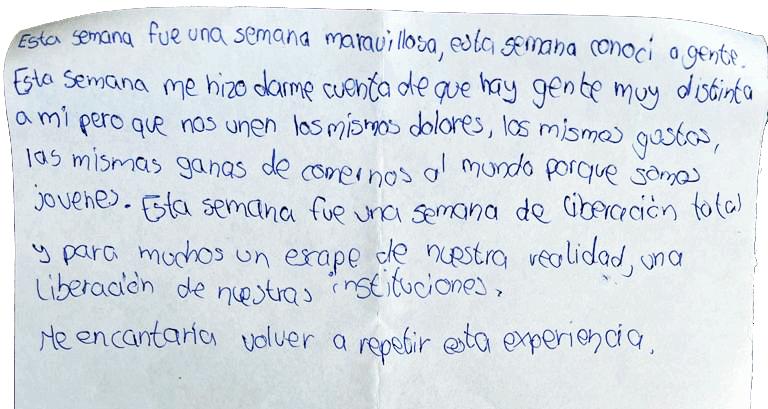 Esta semana fue una semana maravillosa, esta semana conoci a gente.
Esta semana me hizo darme cuenta de que hay gente muy distinta
a mi pero que nos unen los mismos dolores, los mismos gustos,
las mismas ganas de comernos al mundo porque somos
jovenes. Esta semana fue una semana de liberación total
y para muchos un escape de nuestra realidad, una
liberación de nuestras instituciones.
Me encantaría volver a repetir esta experiencia.